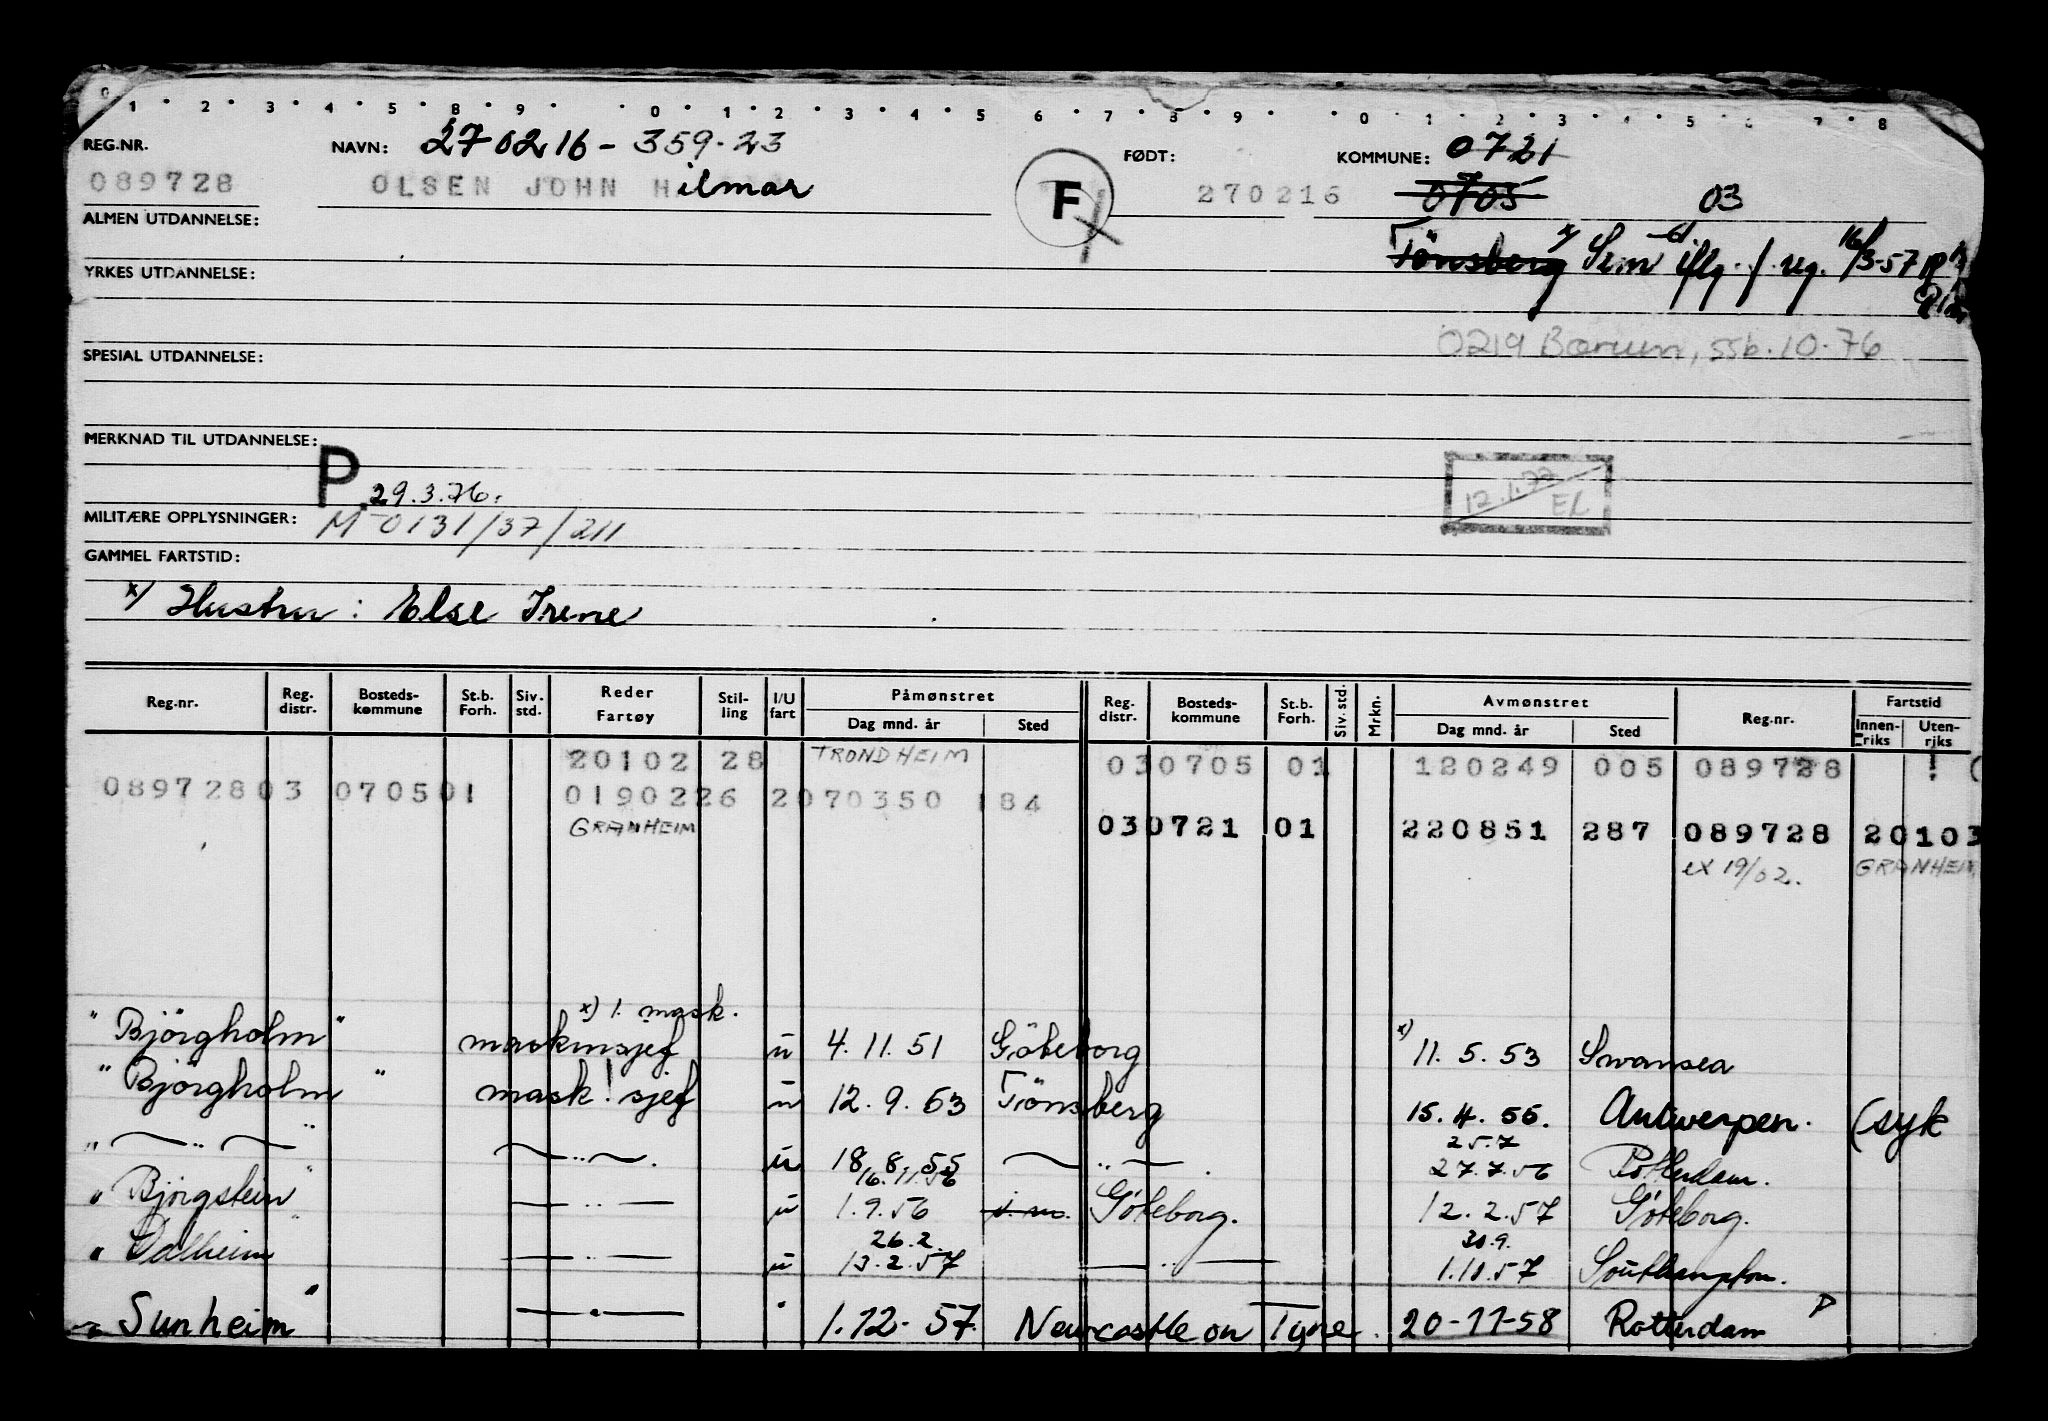 0 1 2 3 4 5 8 9 0 1 2 3 4 5 6 7 8 9 0 1 2 3 4 5 6 7 8
REG.NR. NAVN: 270216-359.23 FØDT: KOMMUNE: 0721
089728 OLSEN JOHN Hilmar F 270216 0705 03
ALMEN UTDANNELSE:
Tönsberg x) Sem iflg. f. reg. 16/3-57
YRKES UTDANNELSE:
0219 Bærum, ssb. 10-76
SPESIAL UTDANNELSE:
MERKNAD TIL UTDANNELSE:
P 29.3.76.
12.1.77 EL
MILITÆRE OPPLYSNINGER: M-0131/37/211
GAMMEL FARTSTID:
x) Hustru: Else Irene
Reg.nr. Reg. distr. Bosteds-kommune St.b. Forh. Siv. std. Reder Fartøy Stil-ling I/U fart Påmønstret Dag mnd. år Sted Reg. distr. Bosteds-kommune St.b. Forh. Siv. std. Mrkn. Avmønstret Dag mnd. år Sted Reg.nr. Fartstid Innen-riks Uten-riks
20102 28 TRONDHEIM 030705 01 120249 005 089728
08972803 070501 0190226 2070350 184
GRANHEIM 030721 01 220851 287 089728 20103
ex 19/02. GRANHEIM
x) 1. mask.
"Björgholm" maskinsjef u 4.11.51 Göteborg x) 11.5.53 Swansea
"Björgholm" mask.sjef u 12.9.53 Tönsberg 15.4.55. Antwerpen. (syk
" — " — " — " — . u 18.8.55 — " — . 25.7 27.7.56 Rotterdam.
16.11.56
"Björgstein" — " — u 1.9.56 Göteborg. 12.2.57 Göteborg.
26.2. 30.9.
"Dalheim" — " — u 13.2.57 — " — 1.10.57 Southampton.
"Sunheim" — " — " 1.12.57 Newcastle on Tyne. 20-11-58 Rotterdam P